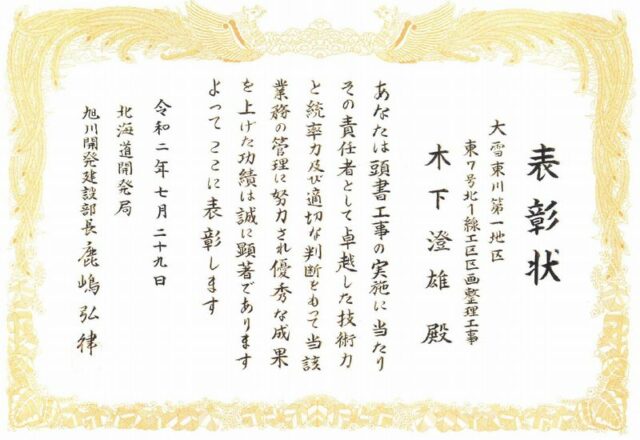 表彰状
大雪東川第一地区
東7号北1線工区区画整理工事
木下澄雄 殿
あなたは頭書工事の実施に当たり
その責任者として卓越した技術力
と統率力及び適切な判断をもって当該
業務の管理に努力され優秀な成果
を上げた功績は誠に顕著であります
よってここに表彰します
令和二年七月二十九日
北海道開発局
旭川開発建設部長 鹿嶋弘律